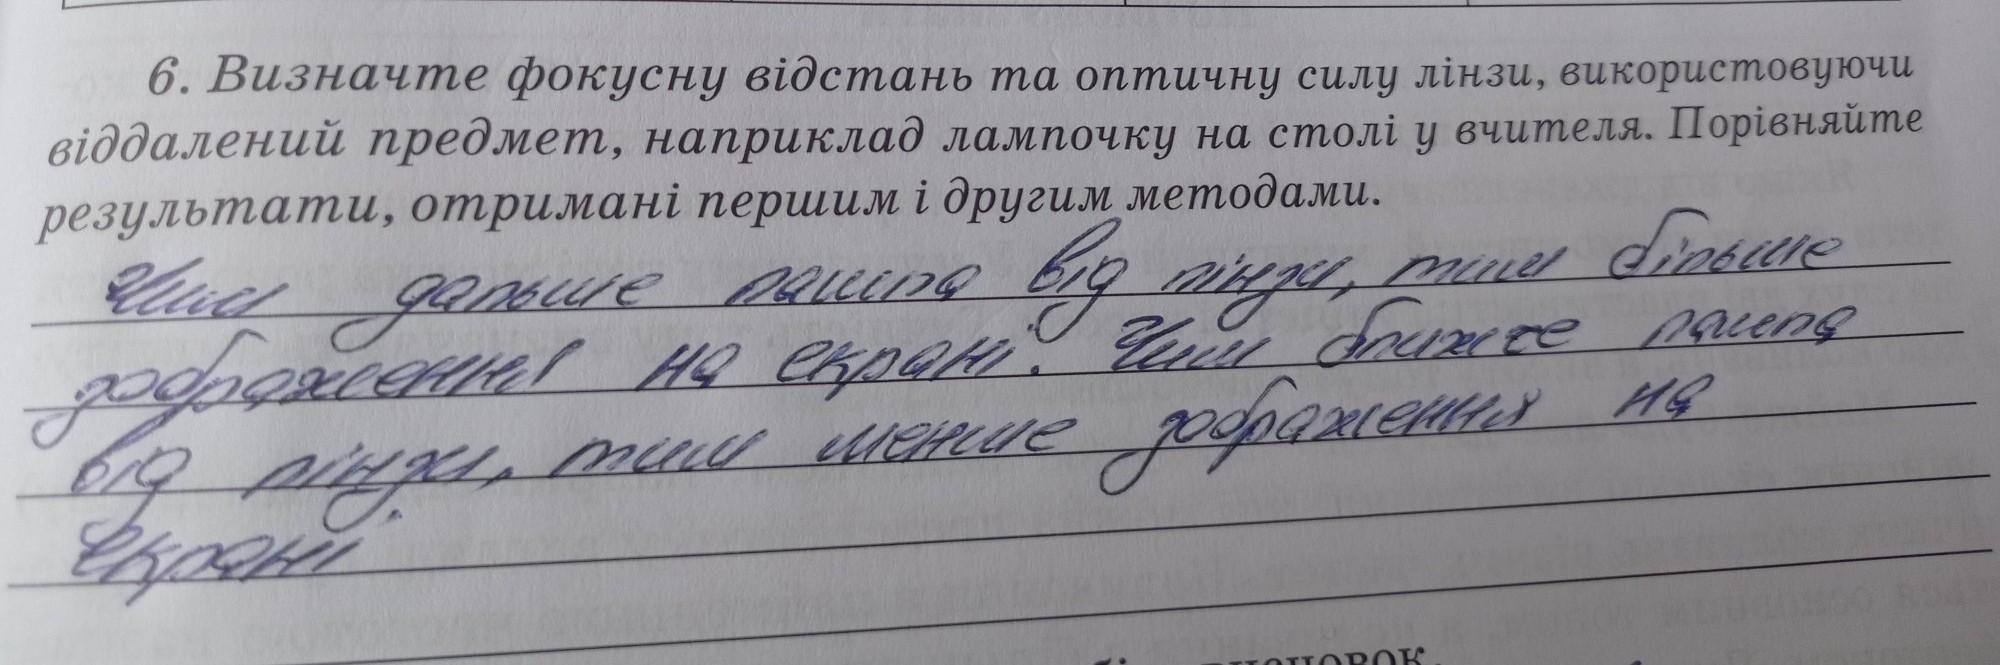 6. Визначте фокусну відстань та оптичну силу лінзи, використовуючи
віддалений предмет, наприклад лампочку на столі у вчителя. Порівняйте
результати, отримані першим і другим методами.
Чим дальше лампа від лінзи, тим більше
зображення на екрані. Чим ближче лампа
від лінзи, тим менше зображення на
екрані.
висновок.